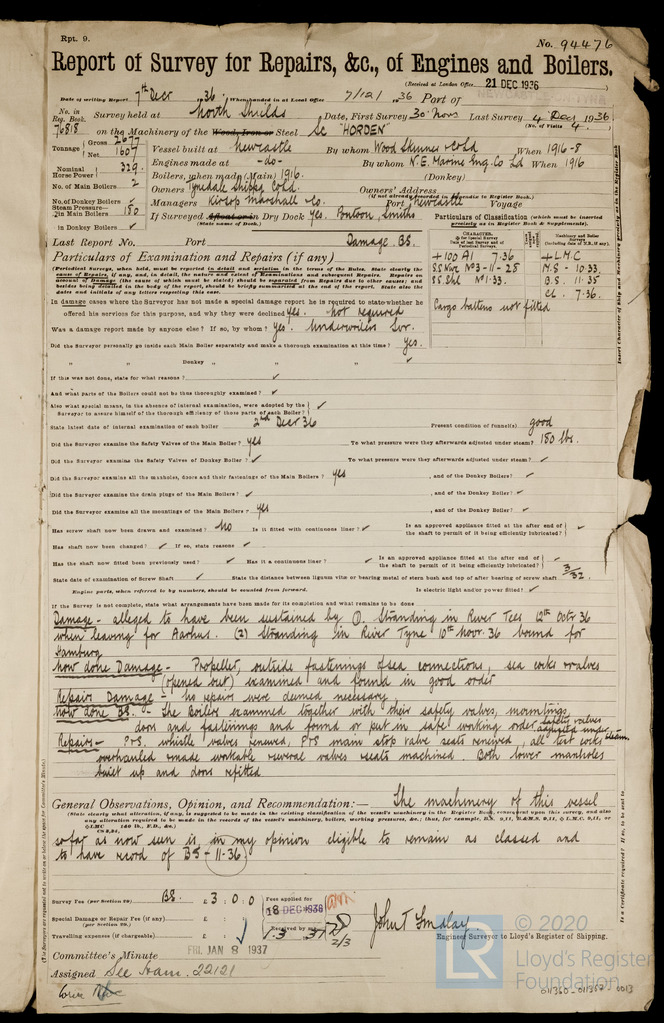 Rpt. 9.
No. 94476
Report of Survey for Repairs, &c., of Engines and Boilers.
(Received at London Office 21 DEC 1936
Date of writing Report 7th Decr 1936. When handed in at Local Office 7/12/ 1936 Port of
No. in Reg. Book. 76818 Survey held at North Shields Date, First Survey 30 Novr Last Survey 4 Decr 1936
(No. of Visits 4.)
on the Machinery of the Wood, Iron or Steel Sc "HORDEN"
Tonnage Gross 2677 Net 1607
Vessel built at Newcastle By whom Wood Skinner & Co Ld When 1916-8
Engines made at -do- By whom N.E. Marine Eng. Co Ld When 1916
Nominal Horse Power 329.
Boilers, when made (Main) 1916. (Donkey)
No. of Main Boilers 2
Owners Tyndale Shipg Co Ld. Owners' Address
(if not already recorded in Appendix to Register Book.)
No. of Donkey Boilers ✓
Managers Kirsop Marshall & Co. Port Newcastle Voyage
Steam Pressure in Main Boilers 180
in Donkey Boilers ✓
If Surveyed Afloat or in Dry Dock Yes. Pontoon, Smiths
(State name of Dock.)
Particulars of Classification (which must be inserted precisely as given in the Register Book).
Last Report No. Port Damage. BS.
Particulars of Examination and Repairs (if any)
CHARACTER.
Machinery and Boiler Surveys
+ 100 A1 7.36
S.S. Nwc No 3-11-25
S.S. Shl No 1.33.
+ L.M.C
M.S - 10.33.
B.S. 11.35
CL. 7.36.
Cargo battens not fitted
(Periodical Surveys, when held, must be reported in detail and seriatim in the terms of the Rules. State clearly the cause of Repairs, if any, and in detail, the nature and extent of Examinations and subsequent Repairs. Repairs on account of Damage (the cause of which must be stated) should be separated from Repairs due to other causes; and besides being detailed in the body of the report, should be briefly summarised at the end of the report. State also the dates and initials of any letters respecting this case.)
In damage cases where the Surveyor has not made a special damage report he is required to state whether he offered his services for this purpose, and why they were declined Yes. Not required
Was a damage report made by anyone else? If so, by whom? Yes. Underwriters Sur.
Did the Surveyor personally go inside each Main Boiler separately and make a thorough examination at this time? Yes.
" " Donkey " " " " ✓
If this was not done, state for what reasons? ✓
And what parts of the Boilers could not be thus thoroughly examined? ✓
Also what special means, in the absence of internal examination, were adopted by the Surveyor to assure himself of the thorough efficiency of those parts of each Boiler? ✓
State latest date of internal examination of each boiler 2nd Decr 36 Present condition of funnel(s) good
Did the Surveyor examine the Safety Valves of the Main Boiler? Yes To what pressure were they afterwards adjusted under steam? 180 lbs.
Did the Surveyor examine the Safety Valves of Donkey Boiler? ✓ To what pressure were they afterwards adjusted under steam? ✓
Did the Surveyor examine all the manholes, doors and their fastenings of the Main Boilers? Yes, and of the Donkey Boilers? ✓
Did the Surveyor examine the drain plugs of the Main Boilers? ✓, and of the Donkey Boiler? ✓
Did the Surveyor examine all the mountings of the Main Boilers? Yes, and of the Donkey Boiler? ✓
Has screw shaft now been drawn and examined? No Is it fitted with continuous liner? ✓ Is an approved appliance fitted at the after end of the shaft to permit of it being efficiently lubricated? ✓
Has shaft now been changed? ✓ If so, state reasons ✓
Has the shaft now fitted been previously used? ✓ Has it a continuous liner? ✓ Is an approved appliance fitted at the after end of the shaft to permit of it being efficiently lubricated? ✓
State date of examination of Screw Shaft ✓ State the distance between lignum vitæ or bearing metal of stern bush and top of after bearing of screw shaft 3/32
Engine parts, when referred to by numbers, should be counted from forward. Is electric light and/or power fitted? ✓
If the Survey is not complete, state what arrangements have been made for its completion and what remains to be done
Damage - alleged to have been sustained by (1). Stranding in River Tees 12th Octr 36
when leaving for Aarhus. (2) Stranding in River Tyne 10th Novr. 36 bound for
Hamburg
Now done Damage - Propeller, outside fastenings of sea connections, sea cocks & valves
(opened out) examined and found in good order
Repairs Damage - No repairs were deemed necessary
Now done BS. - The Boilers examined together with their safety valves, mountings,
doors and fastenings and found or put in safe working order, safety valves adjusted under steam.
Repairs - P&S. whistle valves renewed, P&S main stop valve seats renewed, all test cocks
overhauled made workable several valves & seats machined. Both lower manholes
built up and doors refitted
General Observations, Opinion, and Recommendation:— The machinery of this vessel
so far as now seen is in my opinion eligible to remain as classed and
to have record of BS - 11-36.
Survey Fee (per Section 29) BS. £ 3 : 0 : 0
Special Damage or Repair Fee (if any) (per Section 29.) £ : :
Travelling expenses (if chargeable) £ : :
Fees applied for
18 DEC 1936
Received by me
1.3. 37
2/3
John T Findlay
Engineer Surveyor to Lloyd's Register of Shipping.
Committee's Minute FRI. JAN 8 1937
Assigned See Ham. 22121
© 2020
Lloyd's Register
Foundation
LR
011360-011367-0013